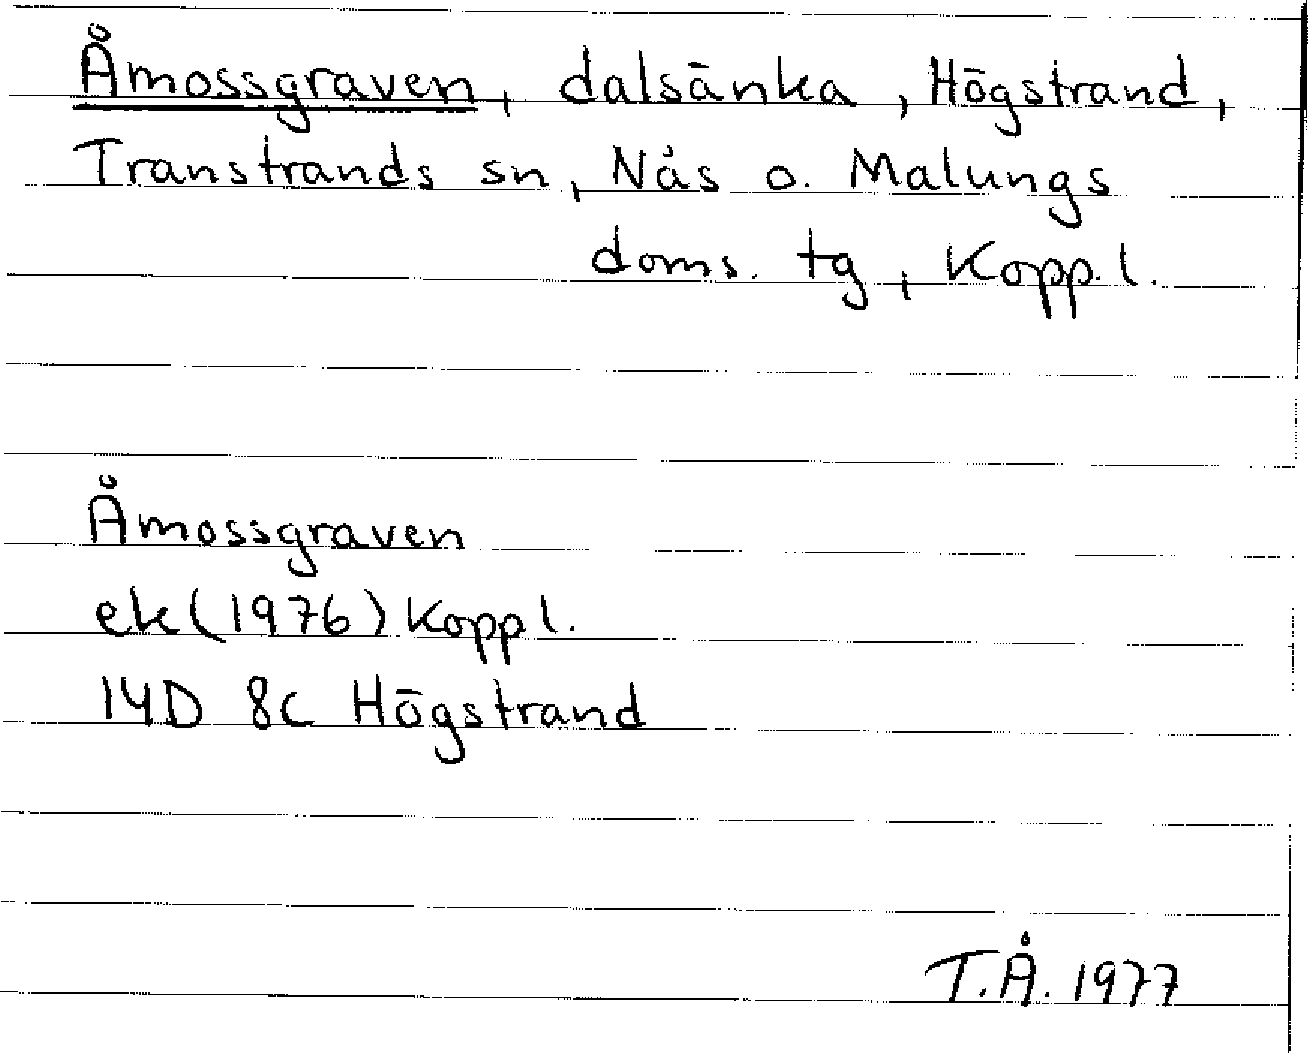 Åmossgraven, dalsänka, Högstrand,
Transtrands sn, Nås o. Malungs
doms. tg, Kopp.l.
Åmossgraven
ek (1976) Koppl.
14D 8c Högstrand
T.Å. 1977